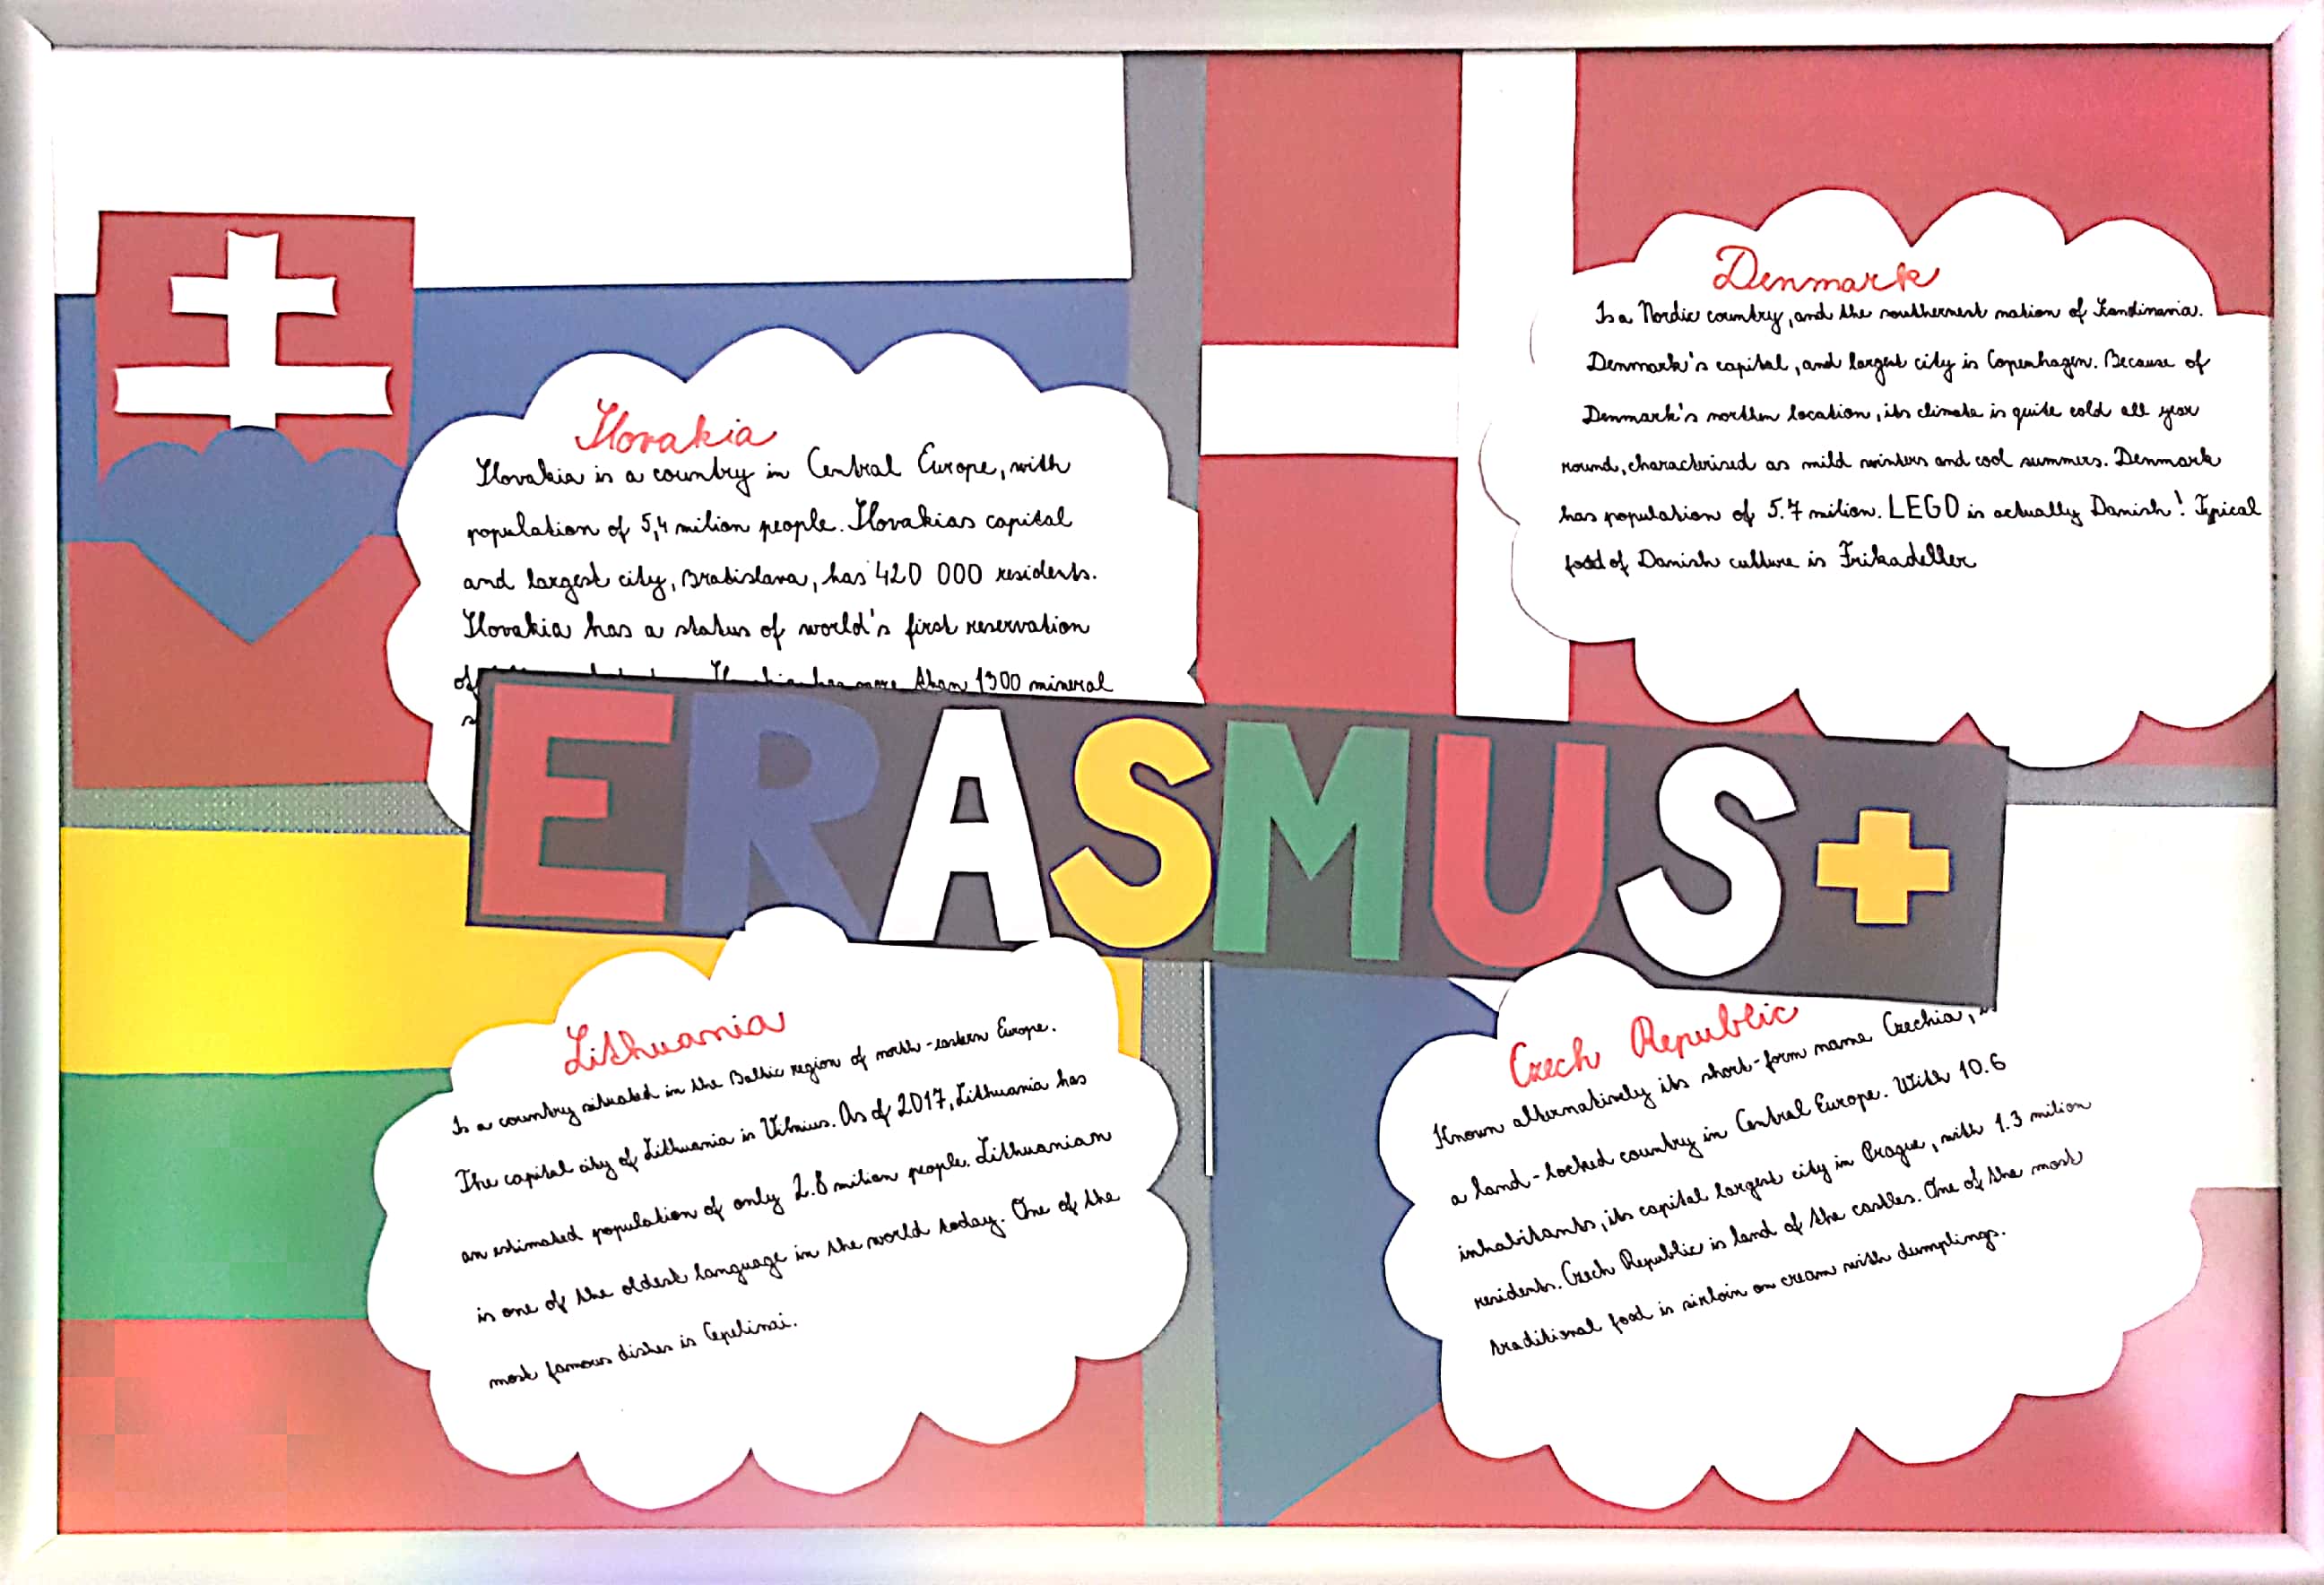 Slovakia
Slovakia is a country in Central Europe, with
population of 5,4 milion people. Slovakias capital
and largest city, Bratislava, has 420 000 residents.
Slovakia has a status of world's first reservation
of Slovakia has more than 1300 mineral
Denmark
Is a Nordic country, and the southernest nation of Scandinavia.
Denmark's capital, and largest city is Copenhagen. Because of
Denmark's northen location, its climate is quite cold all year
round, characterised as mild winters and cool summers. Denmark
has population of 5.7 milion. LEGO is actually Danish! Typical
food of Danish culture is Frikadeller
ERASMUS+
Lithuania
Is a country situated in the Baltic region of north-eastern Europe.
The capital city of Lithuania is Vilnius. As of 2017, Lithuania has
an estimated population of only 2.8 milion people. Lithuanian
is one of the oldest language in the world today. One of the
most famous dishes is Cepelinai.
Czech Republic
Known alternatively its short-form name Czechia, is
a land-locked country in Central Europe. With 10.6
inhabitants, its capital largest city in Prague, with 1.3 milion
residents. Czech Republic is land of the castles. One of the most
traditional food is sirloin on cream with dumplings.